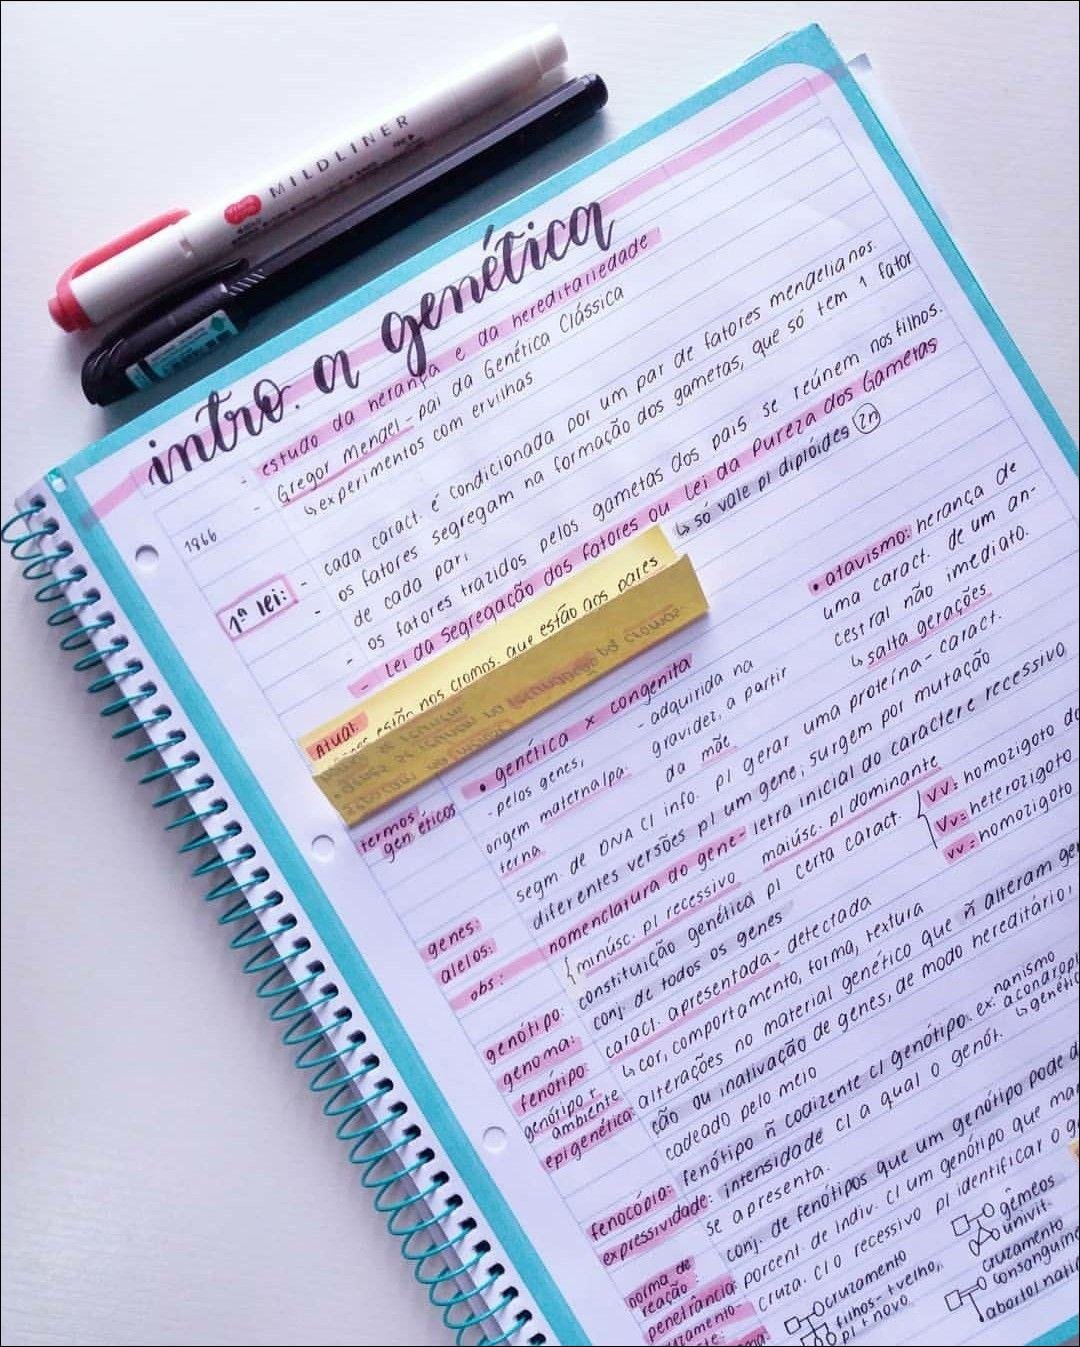 MILDLINER
intro. a genética
- estudo da herança e da hereditariedade
1866 - Gregor Mendel - pai da Genética Clássica
↳ experimentos com ervilhas
1ª lei: - cada caract. é condicionada por um par de fatores mendelianos.
- os fatores segregam na formação dos gametas, que só tem 1 fator
de cada par,
- os fatores trazidos pelos gametas dos pais se reúnem nos filhos.
- Lei da Segregação dos fatores ou Lei da Pureza dos Gametas
↳ só vale p/ diplóides 2n
Atual:
estão nos cromos. que estão aos pares
termos genéticos
• genética x congenita
- pelos genes,
origem materna/pa-
terna
- adquirida na
gravidez, a partir
da mãe
• atavismo: herança de
uma caract. de um an-
cestral não imediato.
↳ salta gerações
genes: segm. de DNA c/ info. p/ gerar uma proteína - caract.
alelos: diferentes versões p/ um gene, surgem por mutação
obs: nomenclatura do gene - letra inicial do caractere recessivo
minúsc. p/ recessivo maiúsc. p/ dominante
VV: homozigoto do
Vv= heterozigoto
vv= homozigoto
genótipo: constituição genética p/ certa caract.
genoma: conj. de todos os genes
fenótipo: caract. apresentada - detectada
genótipo + ambiente ↳ cor, comportamento, forma, textura
epigenética: alterações no material genético que ñ alteram ge
ção ou inativação de genes, de modo hereditário,
cadeado pelo meio
fenocópia: fenótipo ñ codizente c/ genótipo. ex: nanismo
acondropl
↳ genétic
expressividade: intensidade c/ a qual o genót.
se apresenta.
norma de reação: conj. de fenótipos que um genótipo pode d
penetrância: porcent. de indiv. c/ um genótipo que ma
cruza. c/ o recessivo p/ identificar o g
cruzamento
filhos - + velho,
p/ + novo
gêmeos
univit.
cruzamento
consanguíne
aborto/ nati